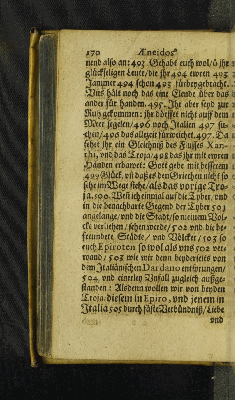 170 Æneidos
nend also an: 493 Gehabt euch wol/ ô ihr
glückseligen Leute/ die ihr 494 ewren 495
Jammer 494 schon 493 fürbeygebracht.
Uns hält noch das eine Elende über das
ander für handen. 495. Ihr aber seyd zur
Ruh gekommen: ihr dörffet nicht auff dem
Meer segelen/ 496 noch Italien 497 su-
chen/ 496 das allezeit fürweichet. 497. Da
sehet ihr ein Gleichniß des Flusses Xan-
thi, und das Troja/ 498 das ihr mit ewren
Händen erbawet: Gott gebe mit besserem
499 Glück, uñ daß es den Griechen nicht so
sehr im Wege stehe/ als das vorige Tro-
ja. 500. Werd ich einmal auf die Tyber, und
in die benachbarte Gegend der Tyber 501
angelange, und die Stadt/ so meinem Vol-
cke verliehen/ sehen werde/ 502 und die be-
freundete Städte/ und Völcker/ 503 so
euch Epiroten so wol als uns 502 ver-
wand/ 503 wie wir denn beyderseits von
dem Italiänischen Dardano entsprungen/
504 und einerley Unfall zugleich außge-
standen: Alsdenn wollen wir von beyden
Troja; diesem in Epiro, und jenem in
Italia 505 durch fäste Verbündniß/ Liebe
und